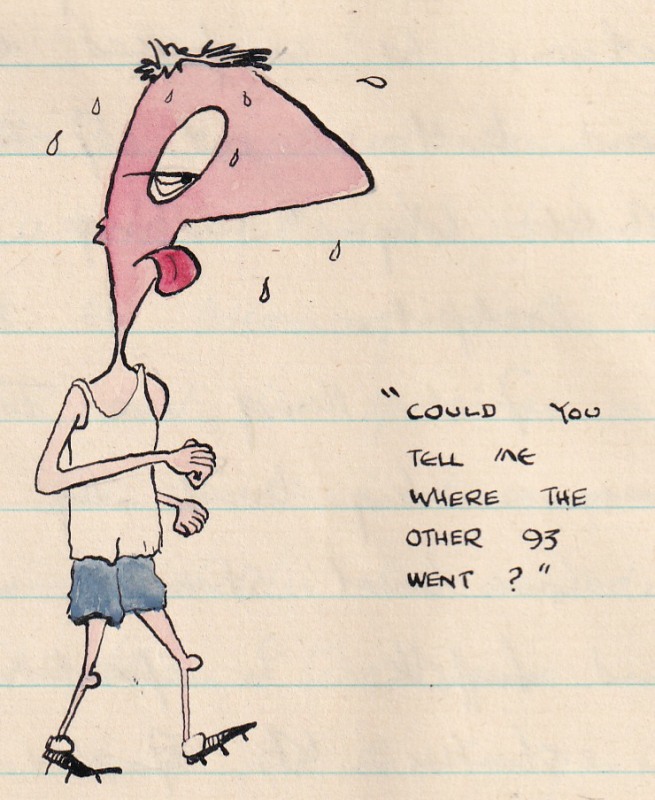 "COULD YOU
TELL ME
WHERE THE
OTHER 93
WENT ?"